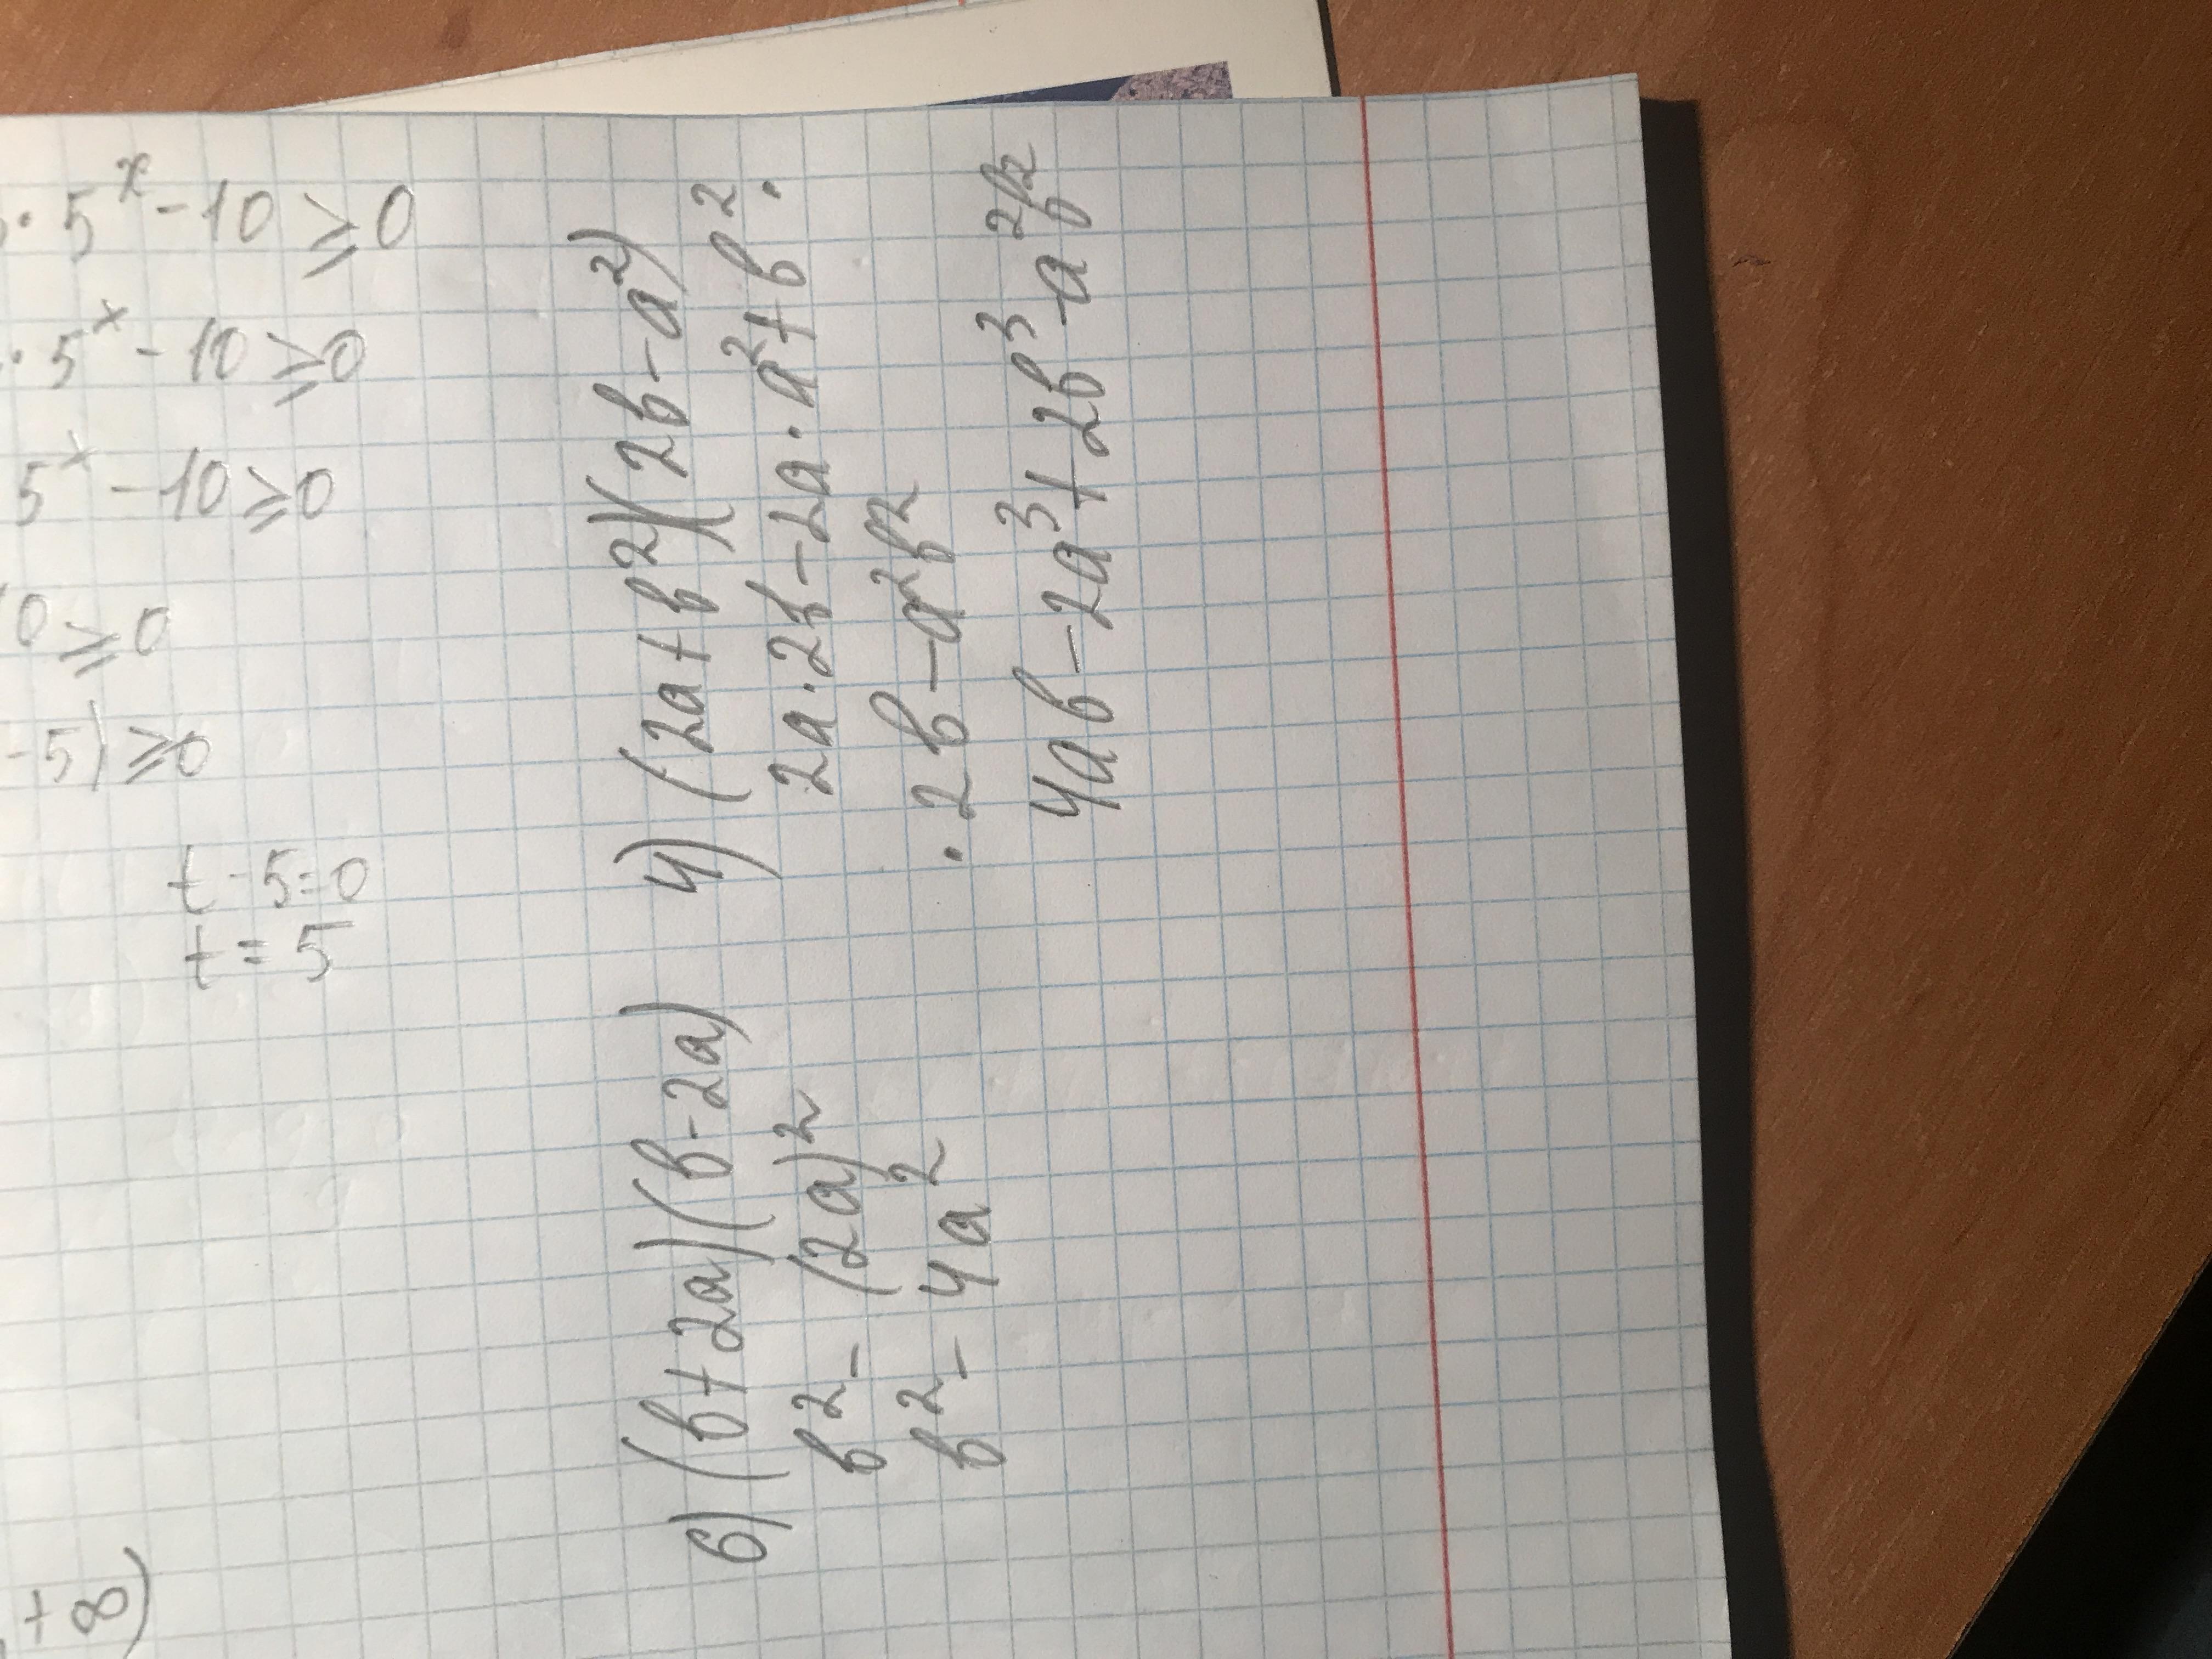 · 5ˣ - 10 ⩾ 0
· 5ˣ - 10 ⩾ 0
5ˣ - 10 ⩾ 0
0 ⩾ 0
-5) ⩾ 0
t - 5 = 0
t = 5
+ ∞)
6) (b+2a)(b-2a)
b² - (2a)²
b² - 4a²
4) (2a + b²)(2b - a²)
2a · 2b - 2a · a² + b² ·
· 2b - a²b²
4ab - 2a³ + 2b³ - a²b²